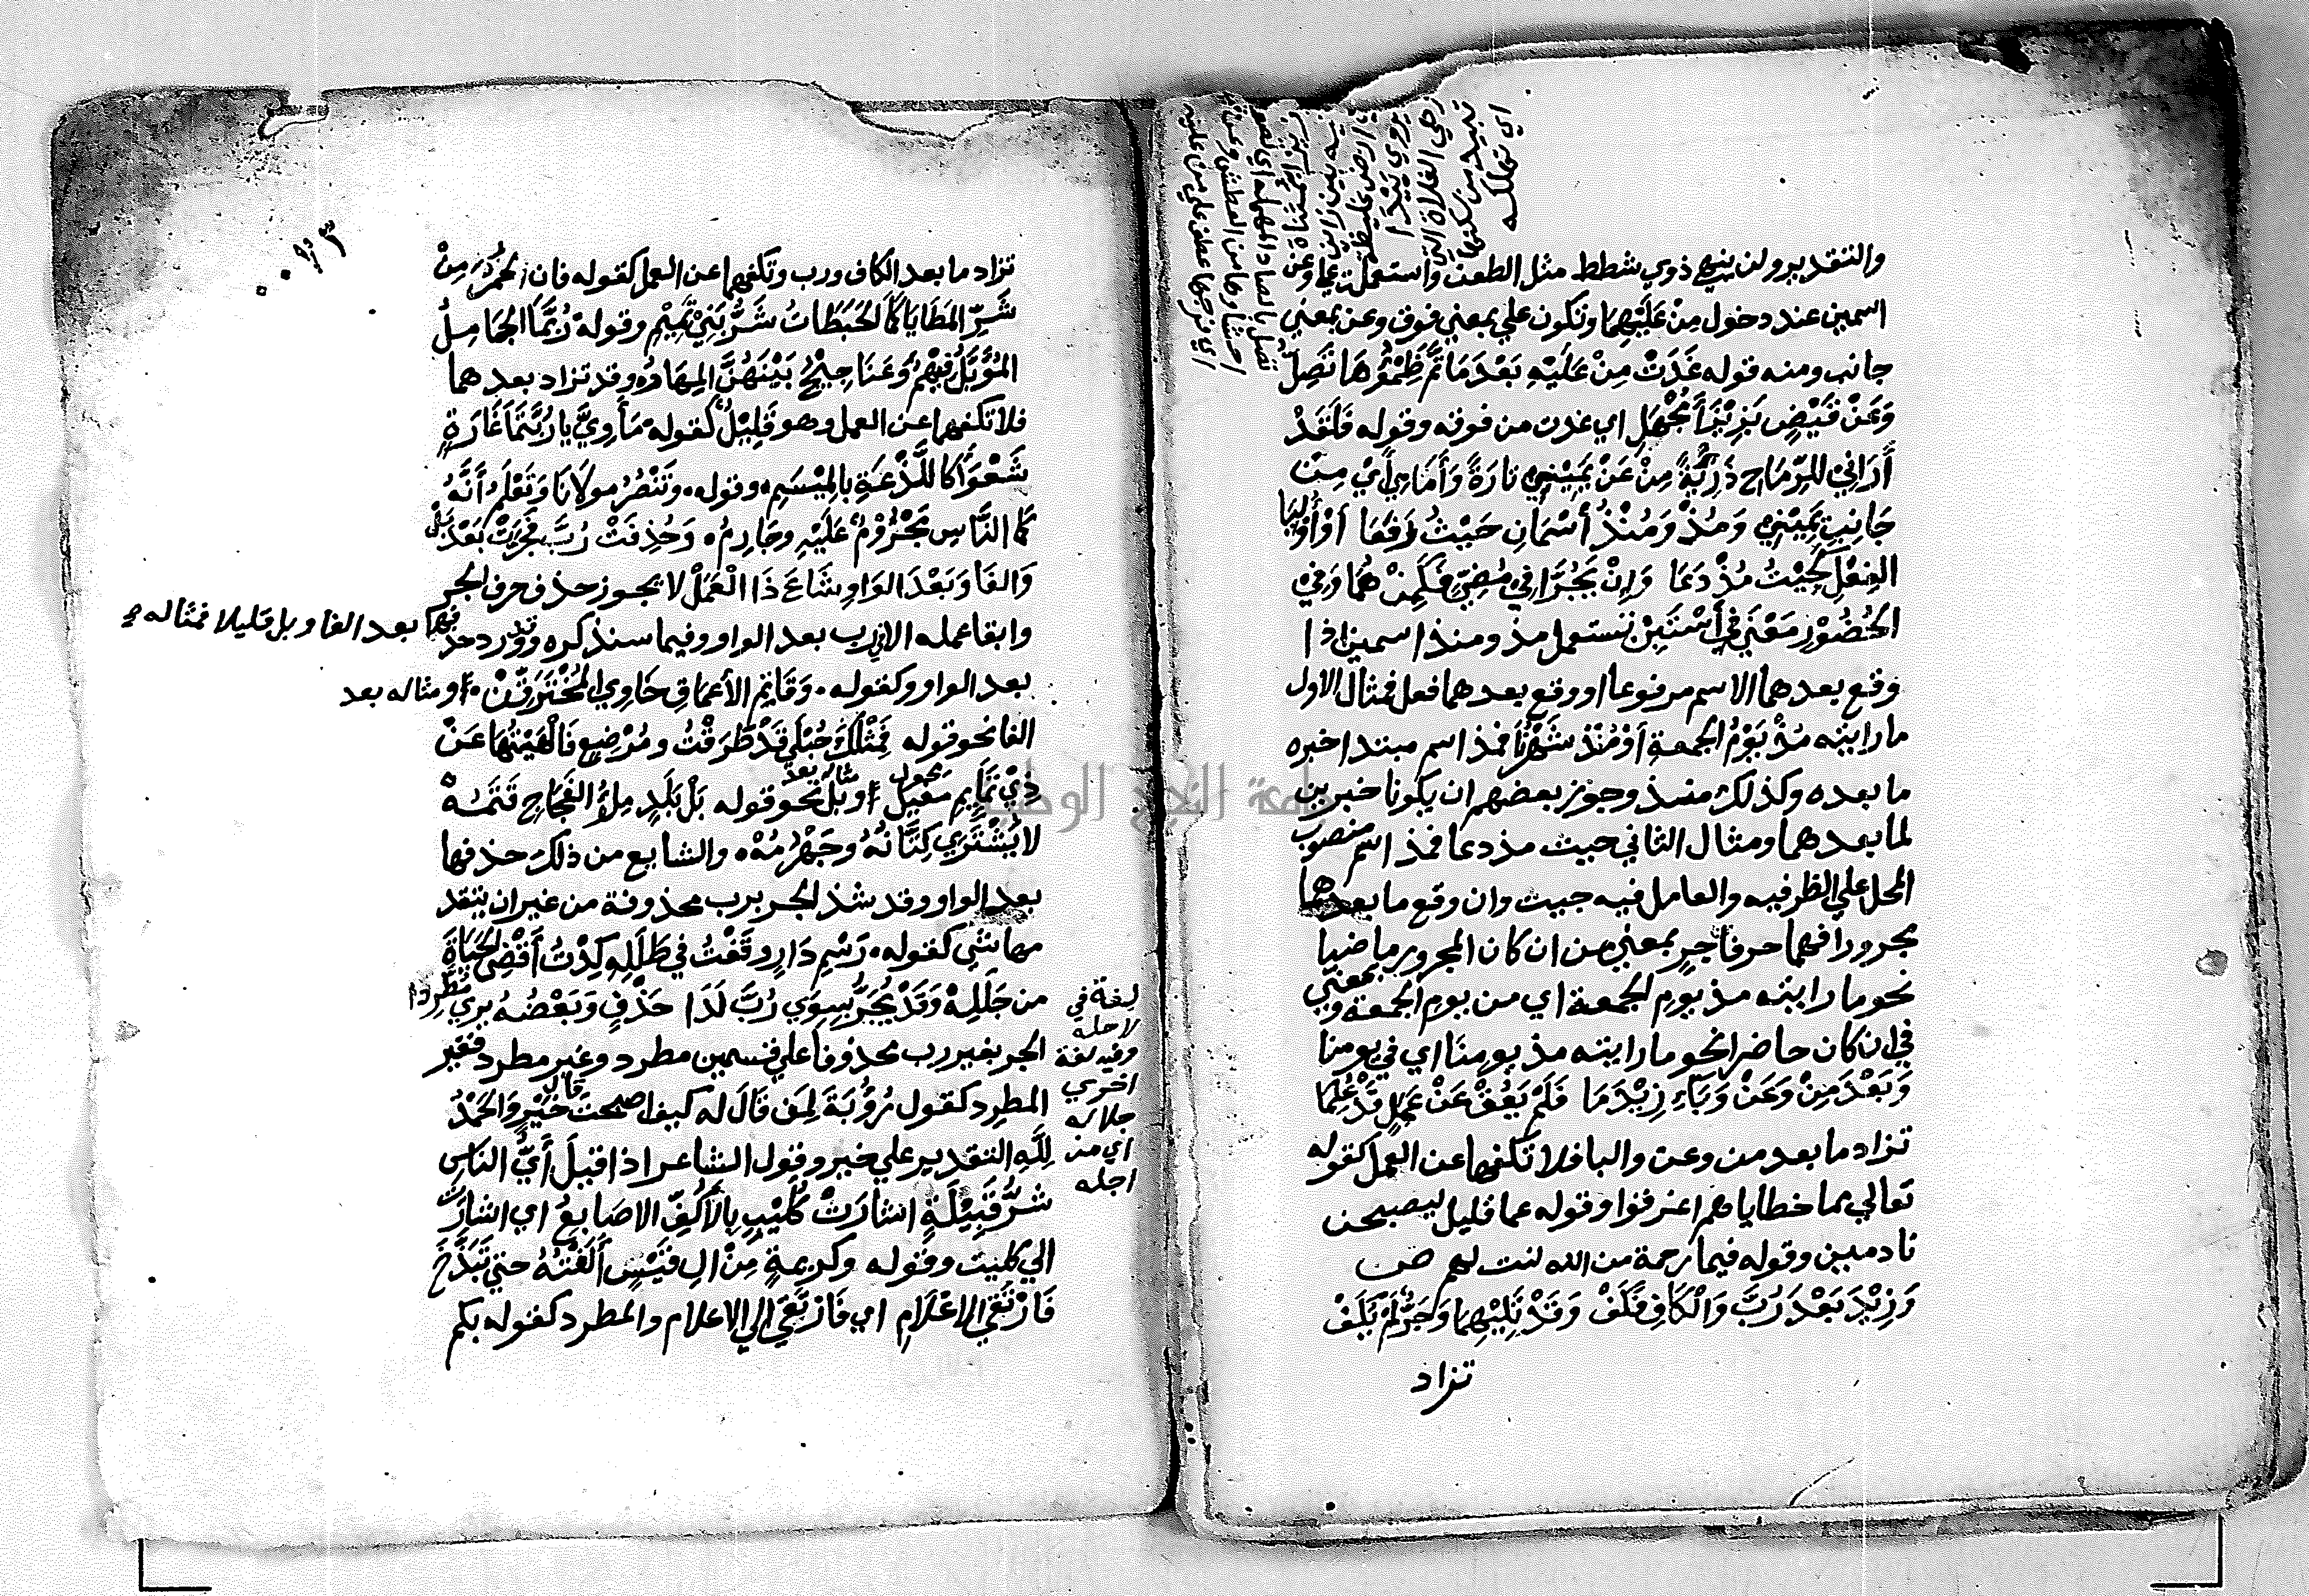 والتقدير ولن ينهي ذوي شطط مثل الطعن واستعملت على وعن
اسمين عند دخول مِنْ عَلَيْهِمَا وتكون على بمعنى فوق وعن بمعنى
جانب ومنه قوله غَدَتْ مِنْ عَلَيْهِ بَعْدَ مَا تَمَّ ظِمْؤُهَا تَصِلُّ
وَعَنْ قَيْضٍ بِزِيْزَاءَ مَجْهَلِ اي غدت من فوقه وقوله فَلَقَدْ
أَرَانِيْ لِلرِّمَاحِ دَرِيَّةً مِنْ عَنْ يَمِيْنِيْ تَارَةً وَأَمَامِي أَيْ مِنْ
جَانِبِ يَمِيْنِيْ وَمُذْ وَمُنْذُ أسْمَانِ حَيْثُ رَفَعَا أَوْ أُوْلِيَا
الفِعْلَ كَجِئْتُ مُذْ دَعَا وَإِنْ يَجُرَّا فِي مُضِيٍّ فَكَمِنْ هُمَا وَفِيْ
الحُضُوْرِ مَعْنَي فِي أَسْتَبِنْ تستعمل مذ ومنذ اسمين اذا
وقع بعدهما الاسم مرفوعا او وقع بعدهما فعل فمثال الاول
ما رايته مُذْ يَوْمُ الجمعةِ أَوْ مُنْذُ شَهْرُنَا فمذ اسم مبتدا خبره
ما بعده وكذلك منذ وجوز بعضهم ان يكونا خبرين
لما بعدهما ومثال الثاني جيت مذ دعا فمذ اسم منصوب
المحل علي الظرفيه والعامل فيه جيت وان وقع ما بعدهما
مجرورا فهما حرفا جر بمعني من ان كان المجرور ماضيا
نحو ما رايته مذ يوم الجمعة اي من يوم الجمعة وبمعني
في ان كان حاضرا نحو ما رايته مذ يومنا اي في يومنا
وَبَعْدَ مِنْ وَعَنْ وَبَاءٍ زِيْدَ مَا فَلَمْ يَعُقْ عَنْ عَمَلٍ قَدْ عُلِمَا
تزاد ما بعد من وعن والبا فلا تكفها عن العمل كقوله
تعالي مما خطاياهم اغرقوا وقوله عما قليل ليصبحن
نادمين وقوله فيما رحمة من الله لنت لهم ص
وَزِيْدَ بَعْدَ رُبَّ وَالْكَافِ فَكَفْ وَقَدْ تَلِيْهِمَا وَجَرٌّ لَمْ يُكَفْ
تزاد
اي تهلكه
تبيد من سلكها
هي الفلاة التي
تزاد ما بعد الكاف ورب وتكفهما عن العمل كقوله فان الحُمُرَ مِنْ
شَرِّ المَطَايَا كَمَا الحَبَطَاتُ شَرُّ بَنِيْ تَمِيْمِ وقوله رُبَّمَا الجَامِلُ
المُؤَبَّلُ فِيْهِمْ وَعَنَاجِيْجُ بَيْنَهُنَّ المِهَارُ وقد تزاد بعدهما
فلا تكفهما عن العمل وهو قَلِيْلُ كقوله مَاوِيَّ يا رُبَّتَمَا غَارَةٍ
شَعْوَاءَ كاللَّذْعَةِ بالمِيْسَمِ وقوله وتَنْصُرُ مولَانَا وَتَعْلَمُ أَنَّهُ
كَمَا النَّاسِ مَجْرُوْمٌ عَلَيْهِ وجارمُ وَحُذِفَتْ رُبَّ فَجَرَّتْ بَعْدَ بَلْ
وَالفَا وَبَعْدَ الوَاوِ شَاعَ ذَا الْعَمَلْ لا يجوز حذف حرف الجر
وابقا عمله الا في رب بعد الواو وفيما سنذكره وقد ورد حذفها بعد الفا وبل قليلا فمثاله
بعد الواو وكقوله وَقَاتِمِ الأَعْمَاقِ خَاوِي المُخْتَرَقْنْ ومثاله بعد
الفا نحو قوله فَمِثْلِكِ حُبْلَي قَدْ طَرَقْتُ ومُرْضِعٍ فَأَلْهَيْتُهَا عَنْ
ذِيْ تَمَايِمَ مُغْيَلِ محول ومثاله بعد بل نحو قوله بَلْ بَلَدٍ مِلْؤُ الفِجَاجِ قَتَمُهْ
لا يُشْتَرَي كَتَّانُهُ وجَهْرَمُهْ والشايع من ذلك حذفها
بعد الواو وقد شذ الجر برب محذوفة من غير ان يتقد
مها شي كقوله رَسْمِ دَارٍ وقَفْتُ في طَلَلِهْ كِدْتُ أَقْضِي الحَيَاةَ
من جَلَلِهْ وَقَدْ يُجَرُّ بِسِوَي رُبَّ لَدَا حَذْفٍ وَبَعْضُهُ يري مُطَّرِدَا
الجر بغير رب محذوفا علي قسمين مطرد وغير مطرد فغير
المطرد كقول رُؤْبَةَ لِمَن قَالَ له كيف اصبحت قال خَيْرٍ وَالحَمْدُ
لِلَّهِ التقدير علي خير وقول الشاعر اذا قيلَ أَيُّ الناسِ
شَرُّ قَبِيْلَةٍ اشارَتْ كُلَيْبٍ بِالأَكُفِّ الاصَابِعُ اي اشارَتْ
الي كليب وقوله وكريمةٍ مِنْ الِ قَيْسٍ أَلَفْتُهُ حتي تَبَذَّخَ
فَارْتَقَي الاعْلَامِ اي فَارْتَقَي الي الاعلام والمطرد كقوله بكم
لغة في
لاجله
وفيه لغة
اخري
جلاله
اي من
اجله
جامعة النجاح الوطنية